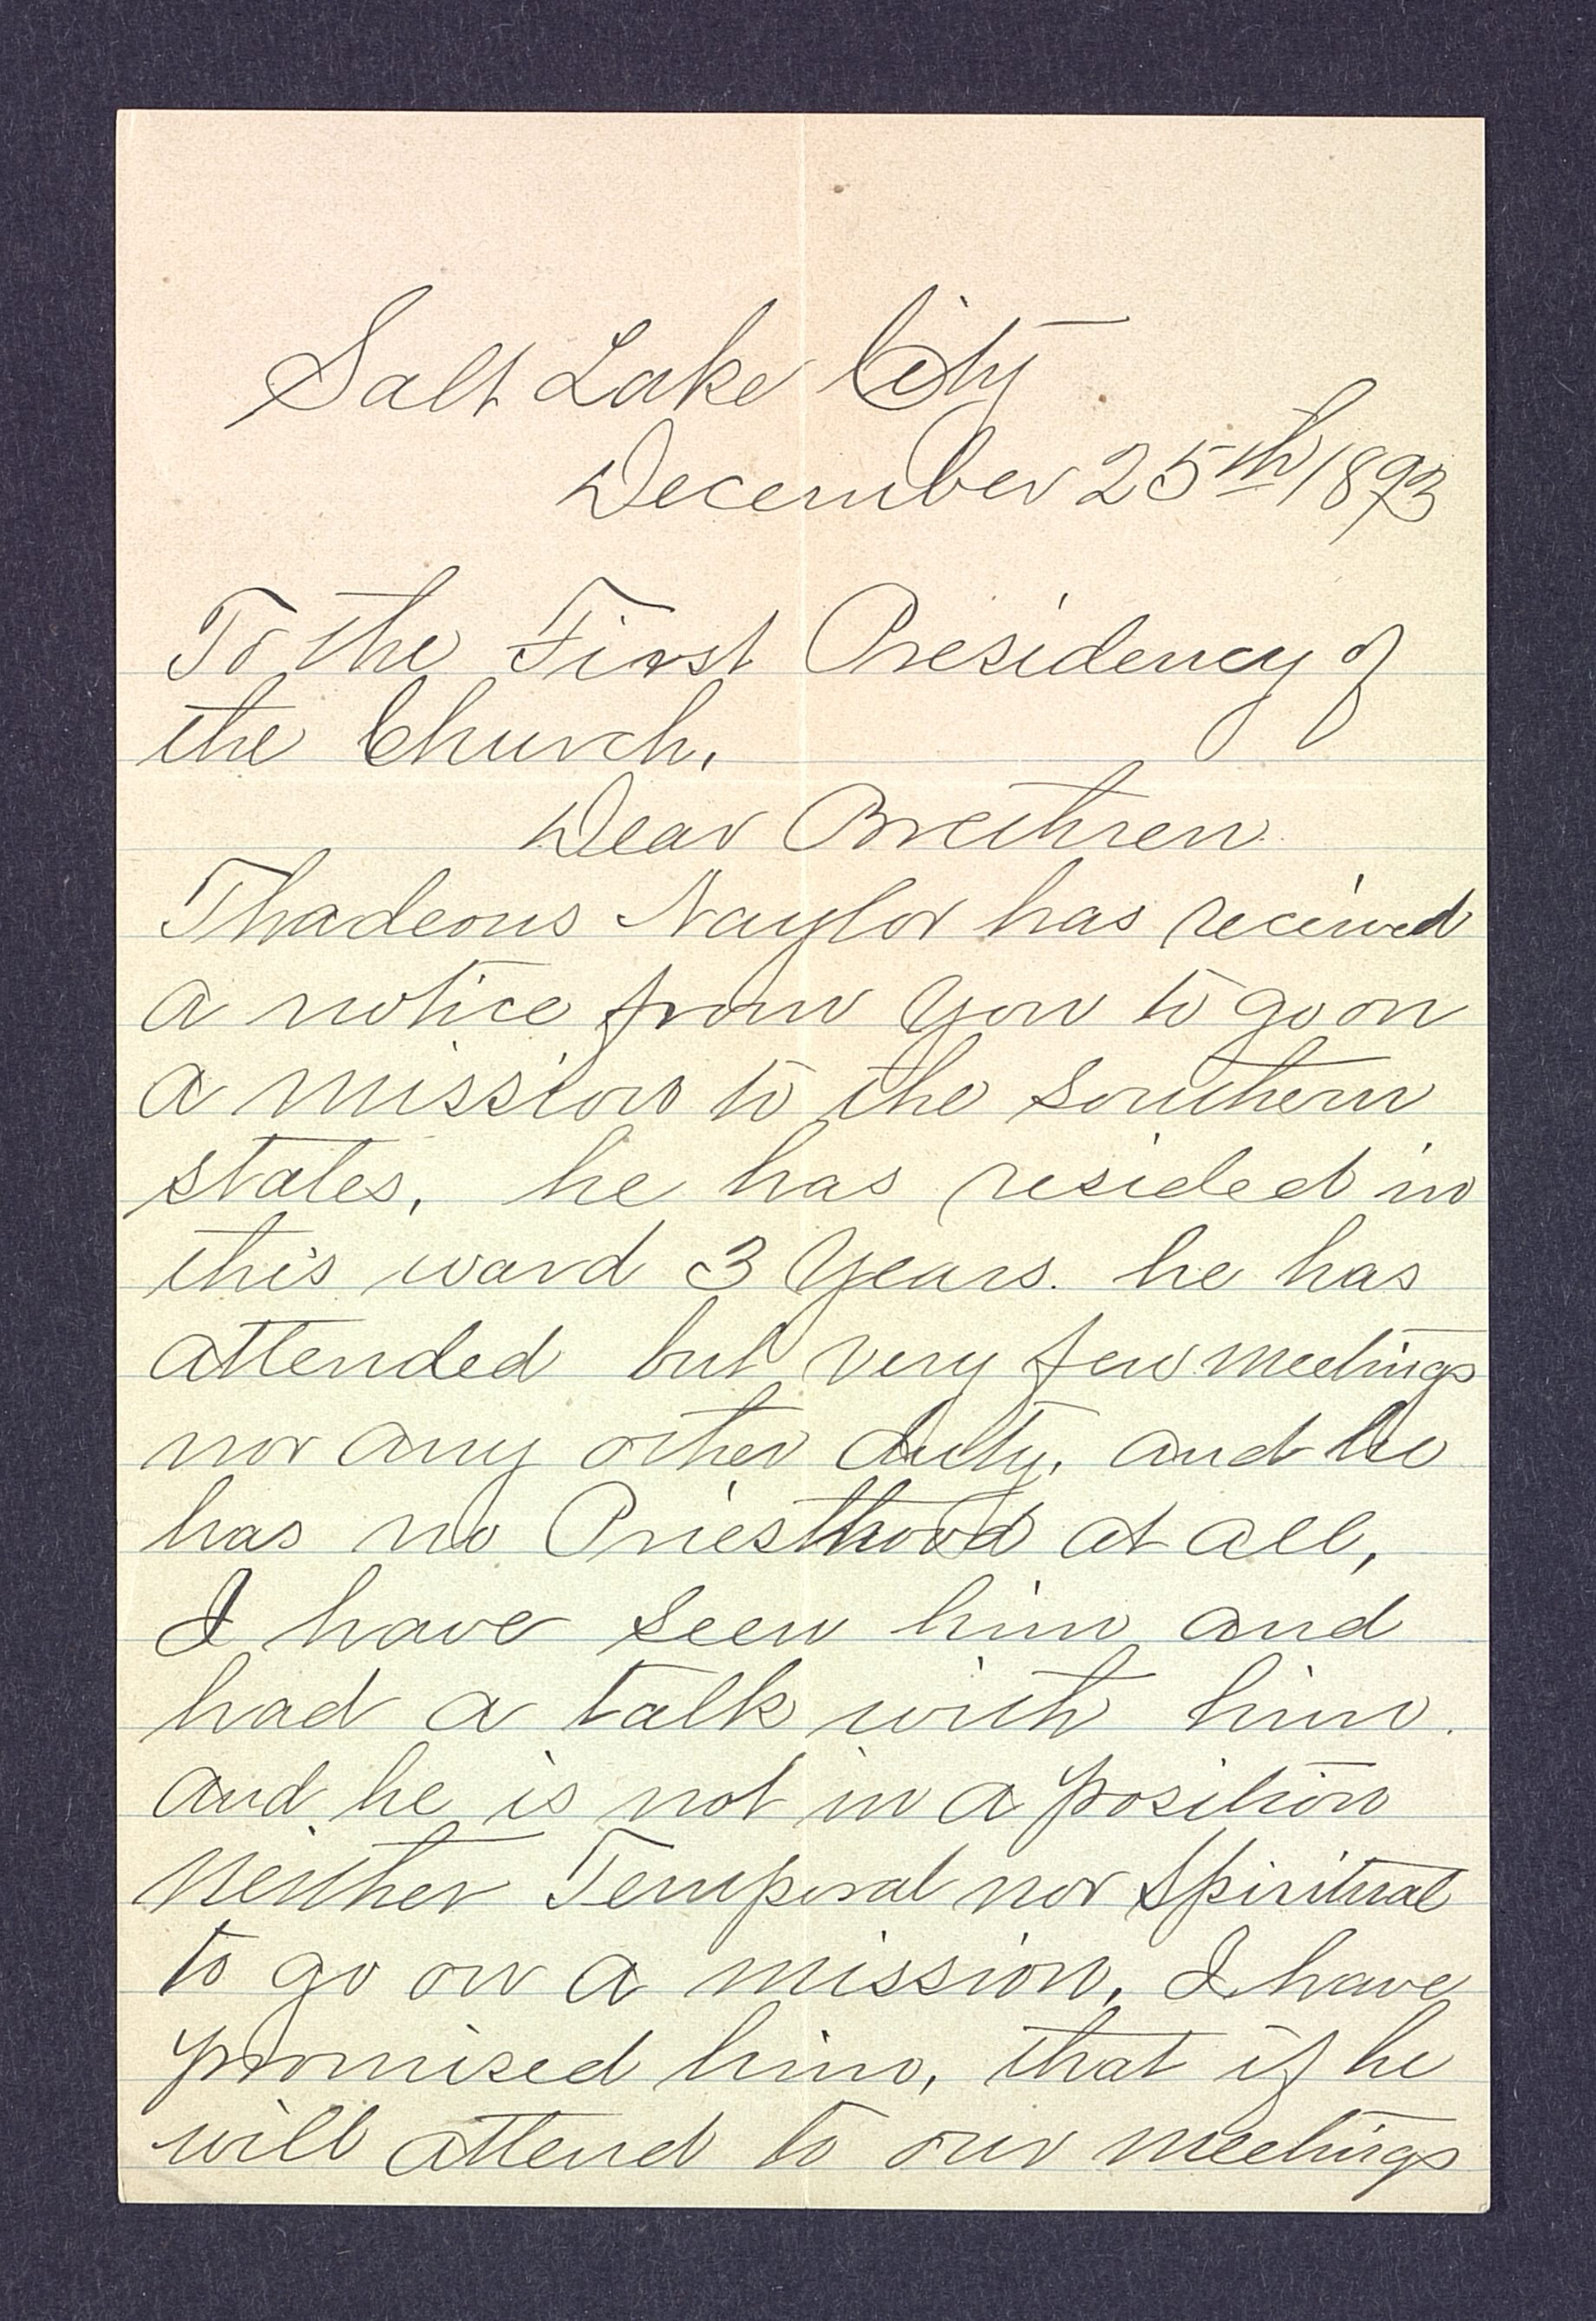 Salt Lake City
December 25th 1893
To the First Presidency of
the Church.
Dear Brethren
Thadeous Naylor has received
a notice from You to go on
a mission to the southern
states, he has resided in
this ward 3 Years. he has
attended but very few meetings
nor any other duty, and he
has no Priesthood at all,
I have seen him and
had a talk with him.
and he is not in a position
Neither Temporal nor Spiritual
to go on a mission, I have
promised him, that if he
will attend to our meetings